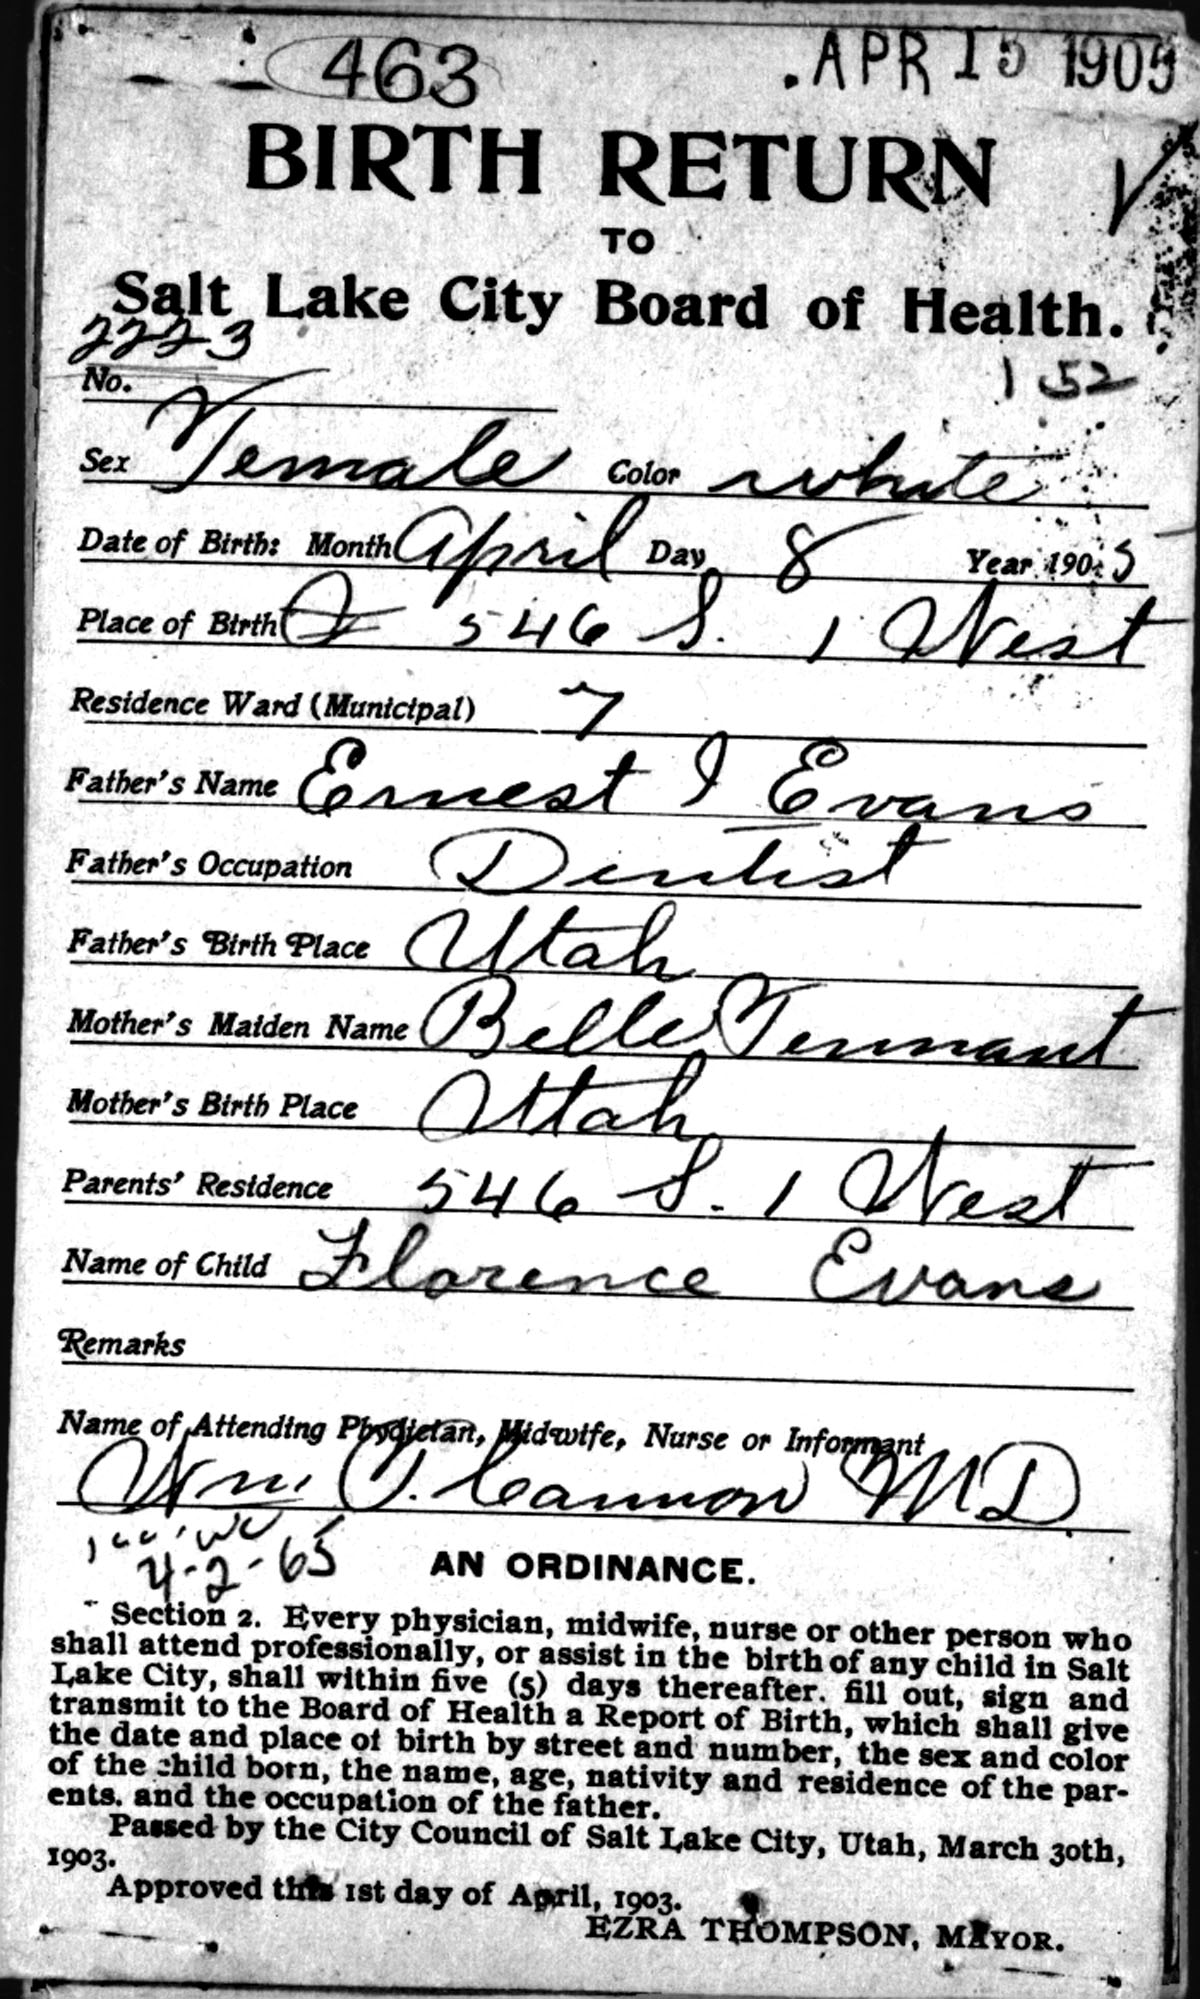 463 . APR 15 1905
BIRTH RETURN
TO
Salt Lake City Board of Health.
2223
No. 152
Sex Female Color white
Date of Birth: Month April Day 8 Year 1905
Place of Birth 546 S. 1 West
Residence Ward (Municipal) 7
Father's Name Ernest I Evans
Father's Occupation Dentist
Father's Birth Place Utah
Mother's Maiden Name Belle Tennant
Mother's Birth Place Utah
Parents' Residence 546 S. 1 West
Name of Child Florence Evans
Remarks
Name of Attending Physician, Midwife, Nurse or Informant
Wm T. Cannon M D.
4-2-65 AN ORDINANCE.
Section 2. Every physician, midwife, nurse or other person who
shall attend professionally, or assist in the birth of any child in Salt
Lake City, shall within five (5) days thereafter. fill out, sign and
transmit to the Board of Health a Report of Birth, which shall give
the date and place of birth by street and number, the sex and color
of the child born, the name, age, nativity and residence of the par-
ents. and the occupation of the father.
Passed by the City Council of Salt Lake City, Utah, March 30th,
1903.
Approved this 1st day of April, 1903.
EZRA THOMPSON, MAYOR.